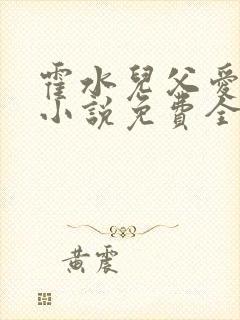 霍水兒父愛
小說免費全
黃震